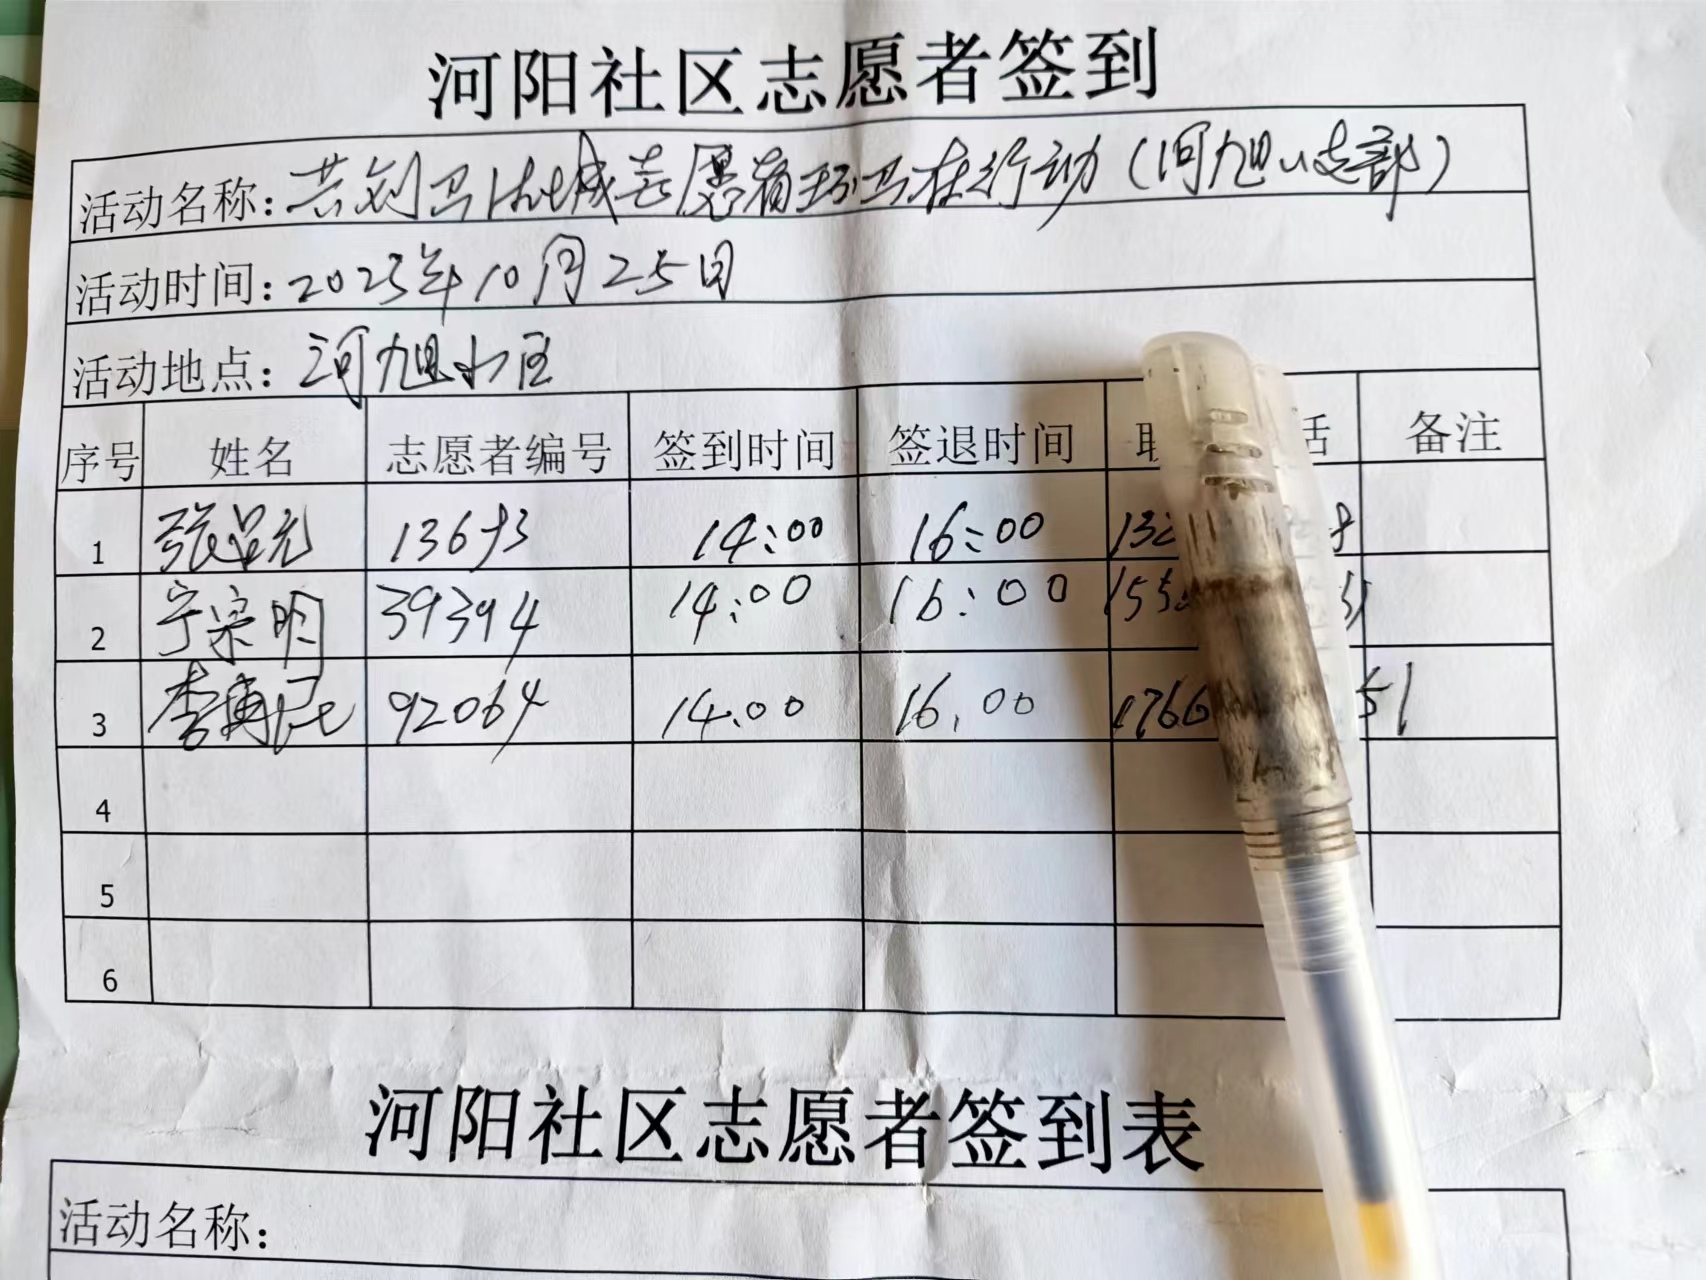 河阳社区志愿者签到
活动名称：共创卫生城志愿者环卫在行动（河旭小支部）
活动时间：2023年10月25日
活动地点：河旭小区
序号 姓名 志愿者编号 签到时间 签退时间 备注
1 张 14:00 16:00
2 宁宗明 39394 14:00 16:00
3 李 92064 14.00 16.00 1766 51
4
5
6
河阳社区志愿者签到表
活动名称：